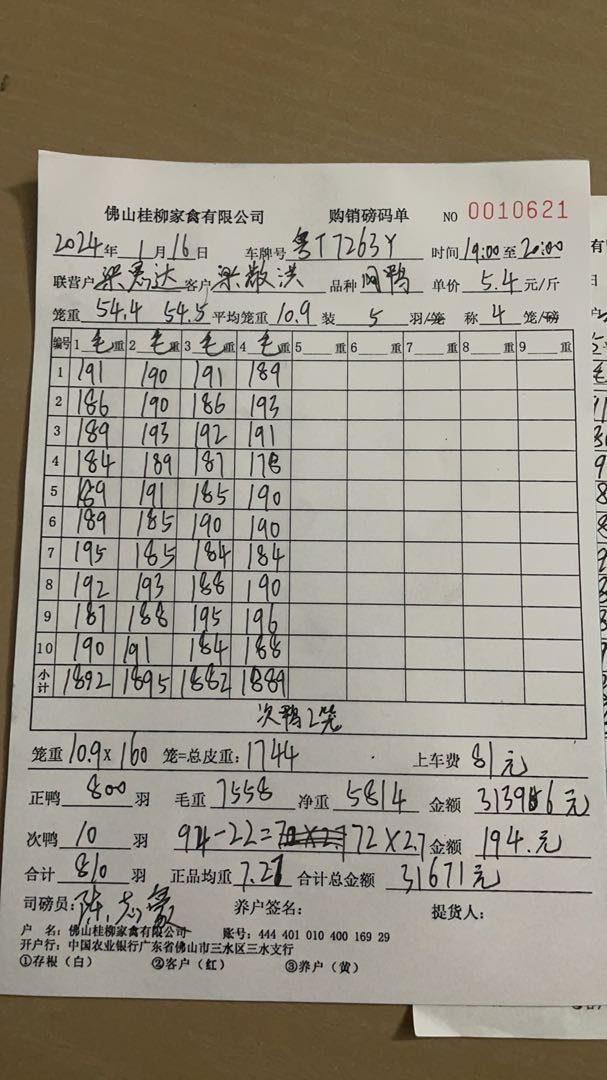 佛山桂柳家禽有限公司 购销磅码单 NO 0010621
2024年 1月16日 车牌号 粤T7263Y 时间 19:00至20:00
联营户 梁志达 客户 梁敬洪 品种 闪鸭 单价 5.4 元/斤
笼重 54.4 54.5 平均笼重 10.9 装 5 羽/笼 称 4 笼/磅
编号 1 毛 重 2 毛 重 3 毛 重 4 毛 重 5 重 6 重 7 重 8 重 9 重
1 191 190 191 189
2 186 190 186 193
3 189 193 192 191
4 184 189 187 178
5 189 191 185 190
6 189 185 190 190
7 195 185 184 184
8 192 193 188 190
9 187 188 195 196
10 190 191 184 188
小计 1892 1895 1882 1889
次鸭2笼
笼重 10.9×160 笼=总皮重: 1744 上车费 81元
正鸭 800 羽 毛重 7558 净重 5814 金额 31396元
次鸭 10 羽 94-22=72×2.7 金额 194.元
合计 810 羽 正品均重 7.27 合计总金额 31671元
司磅员: 陈志 养户签名: 提货人:
户 名: 佛山桂柳家禽有限公司 账号: 444 401 010 400 169 29
开户行: 中国农业银行广东省佛山市三水区三水支行
①存根(白) ②客户(红) ③养户(黄)